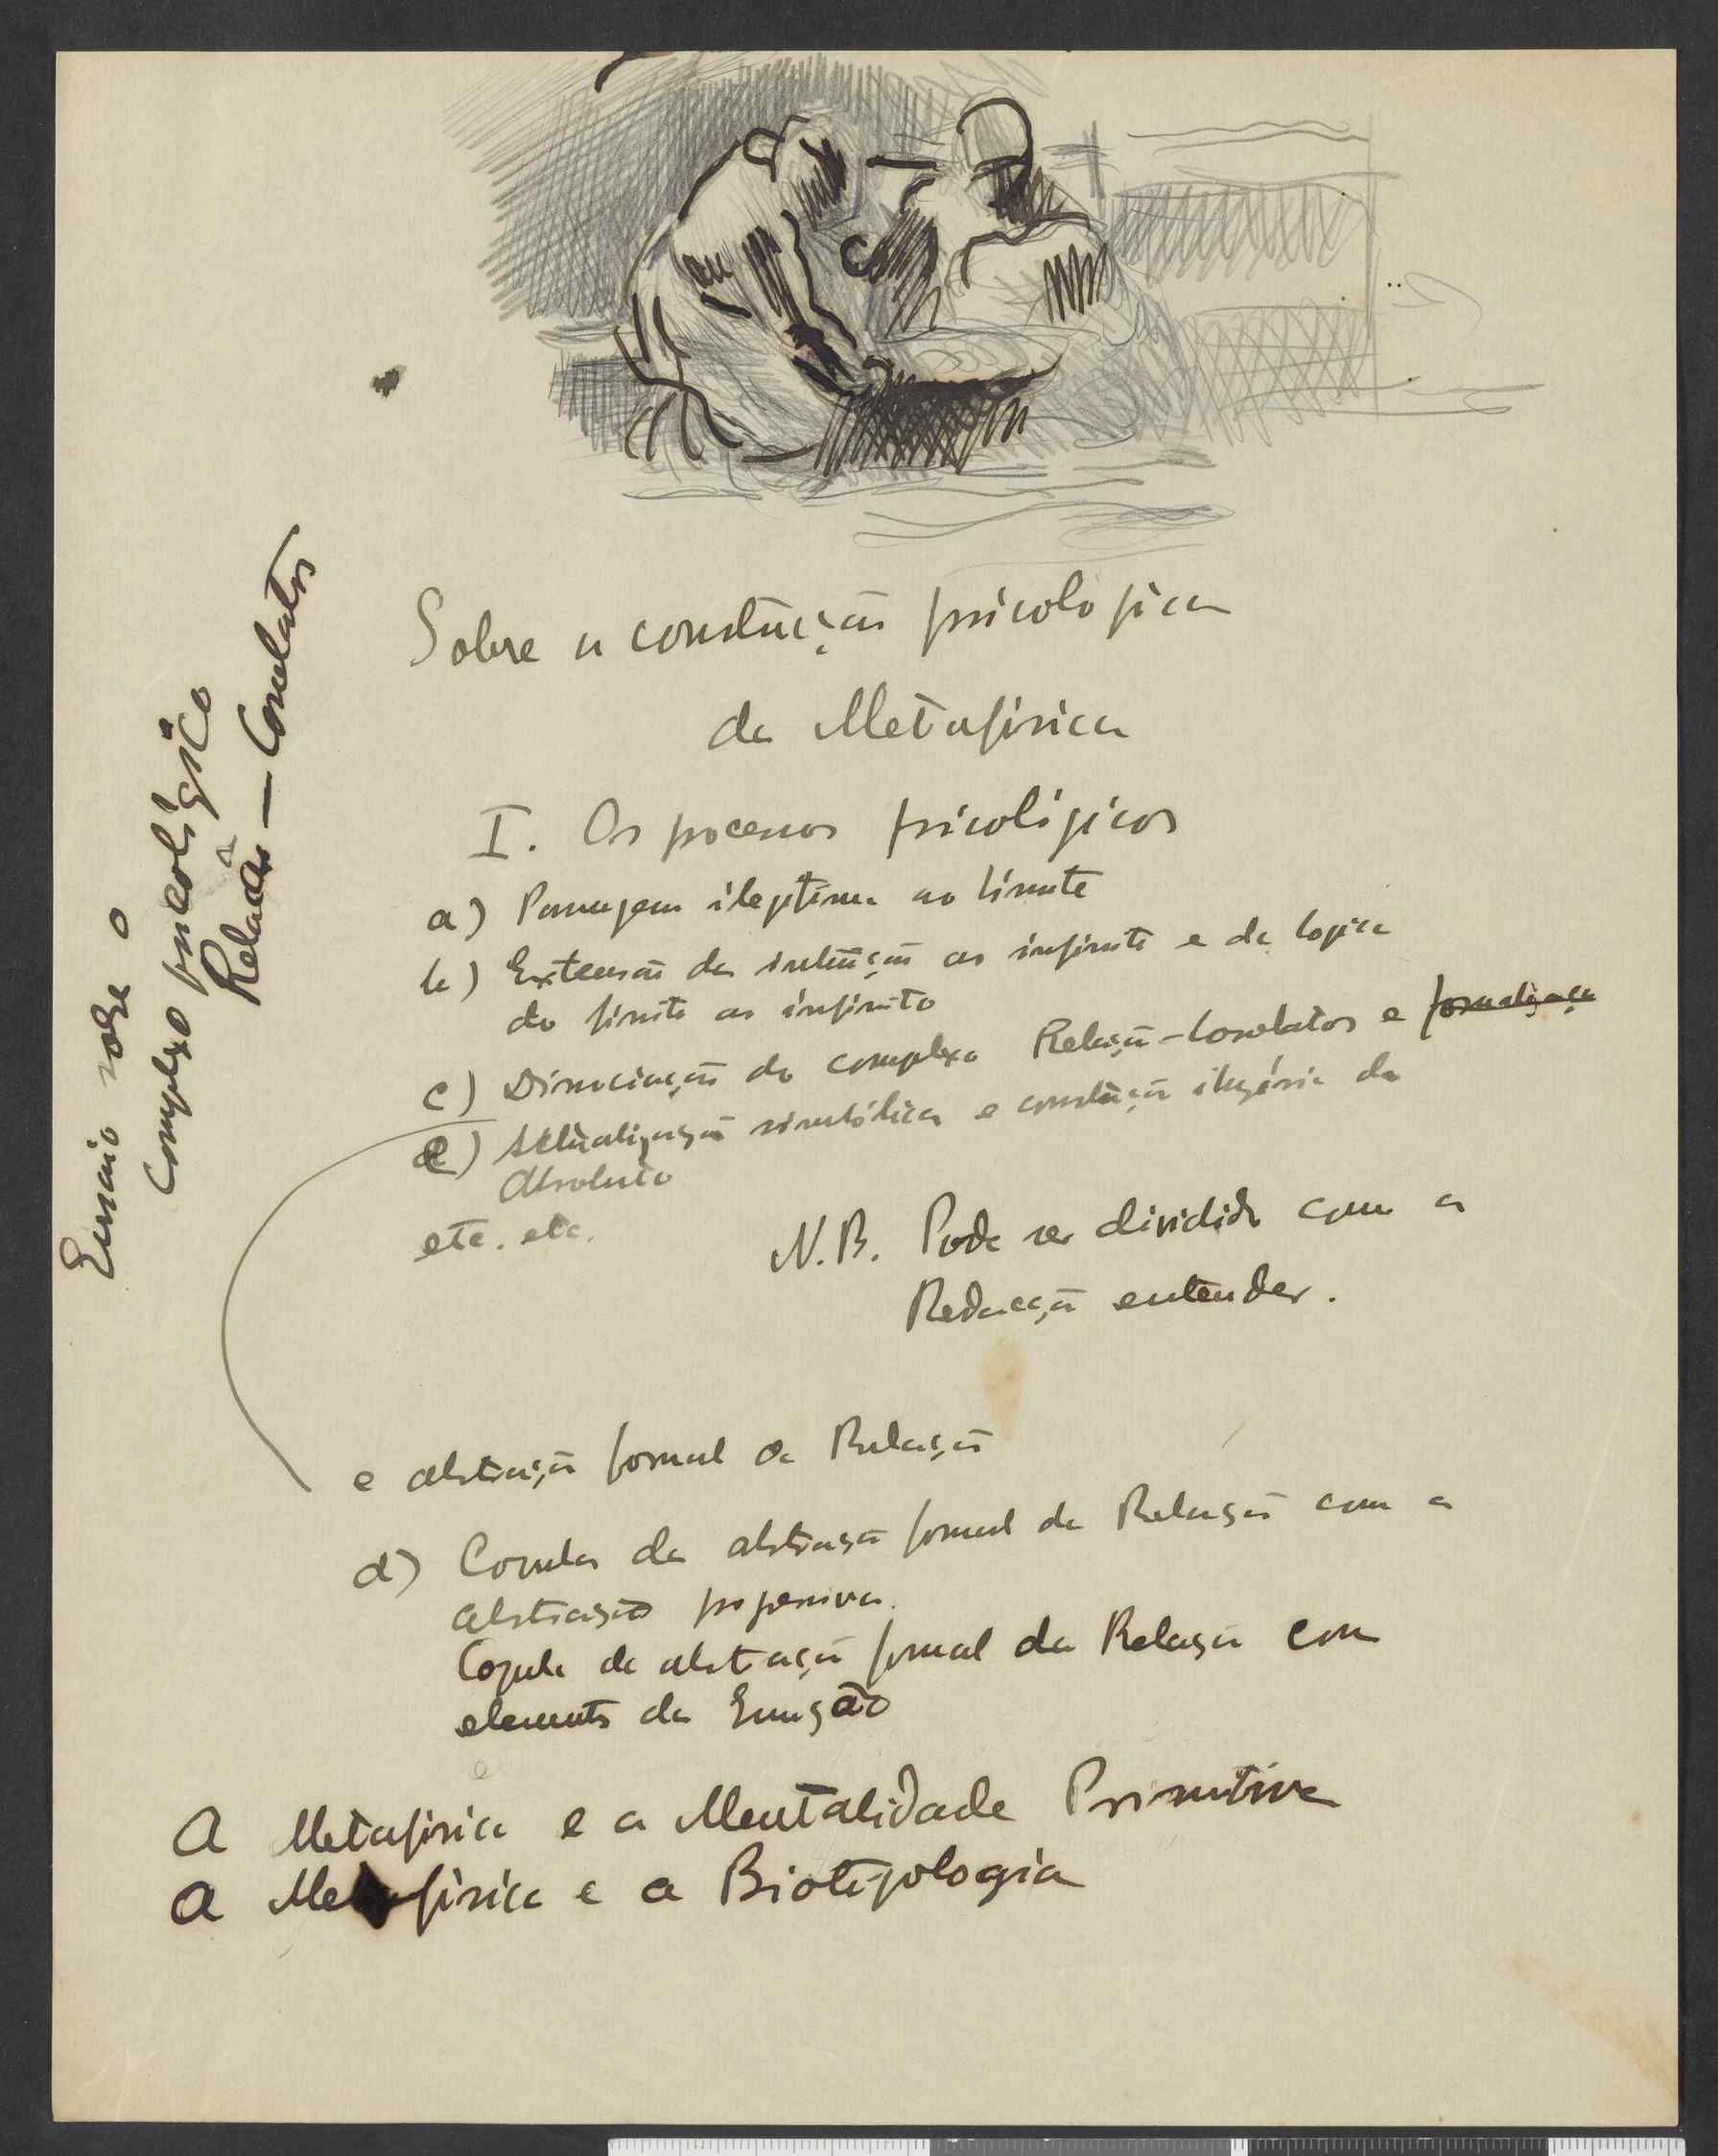 Sobre a construção psicologica
da Metafisica
I. Os processos psicológicos
a) Passagem ilegitima ao limite
b) Extensão da intuição ao infinito e da logica
do finito ao infinito
c) Dissociação do complexo Relação-Correlatos e formalização
e) Actualização simbólica e construção ilusória do
Absoluto
etc. etc.
N.B. Pode ser dividido com a
Redacção entender.
e abstração formal da Relação
d) Copula da abstração formal da Relação com a
abstração progressiva.
Copula da abstração formal da Relação com
elementos da Emoção
A Metafisica e a Mentalidade Primitiva
A Metafisica e a Biotipologia
Ensaio sobre o
Complexo psicológico
Relação — Correlatos